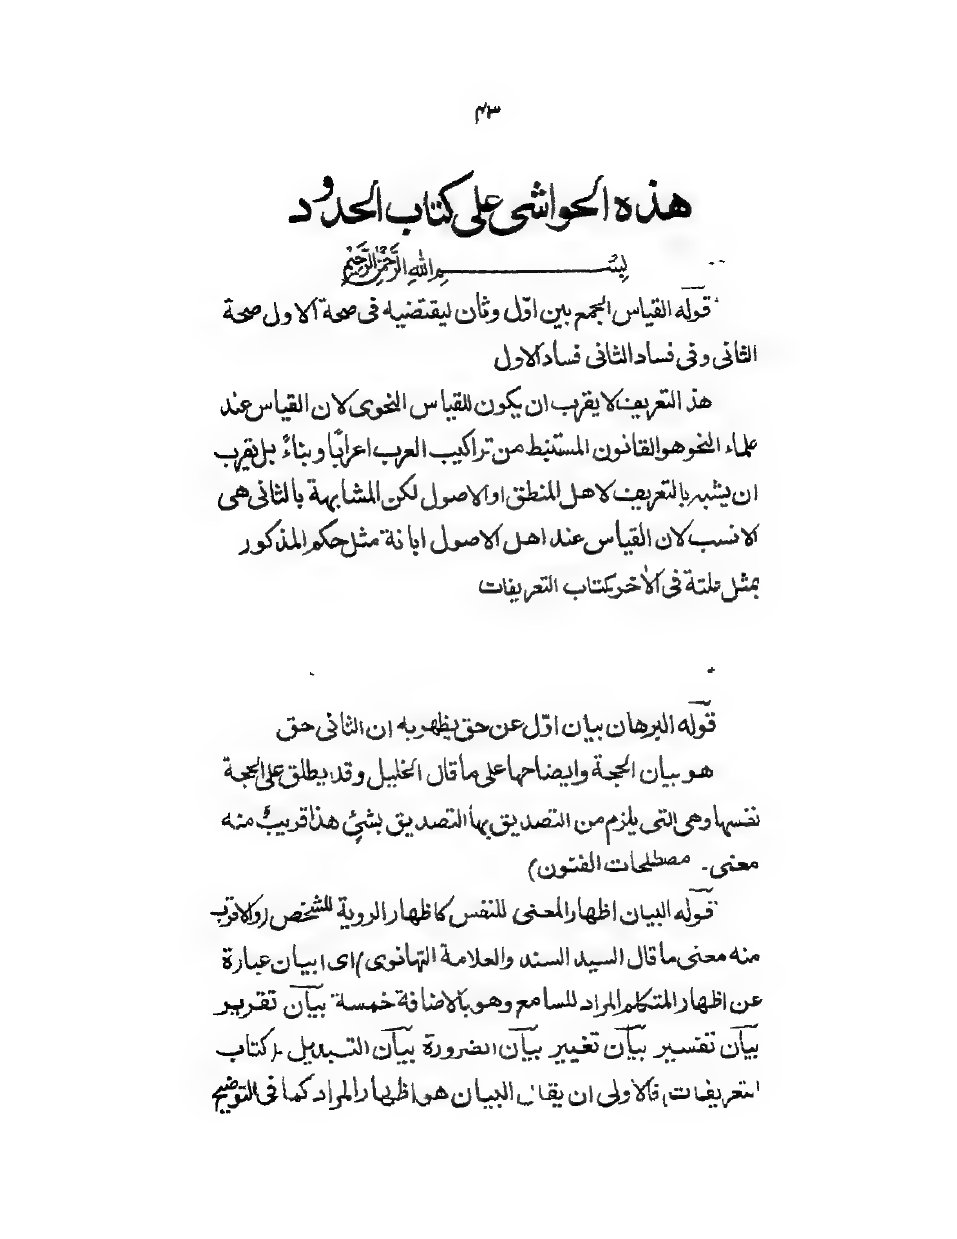 ٤٣
هذه الحواشى على كتاب الحدود
بسم الله الرحمن الرحيم
قوله القياس الجمع بين اوّل وثان ليقتضيه فى صحة الاول صحة
الثانى وفى فساد الثانى فساد الاول
هذ التعريف لا يقرب ان يكون للقياس النحوى لان القياس عند
علماء النحو هو القانون المستنبط من تراكيب العرب اعرابًا وبناءً بل يقرب
ان يشبه بالتعريف لاهل المنطق او الاصول لكن المشابهة بالثانى هى
الانسب لان القياس عند اهل الاصول ابانة مثل حكم المذكور
بمثل علته فى الاخر كتاب التعريفات
قوله البرهان بيان اوّل عن حق يظهر به ان الثانى حق
هو بيان الحجة وايضاحها على ما قال الخليل وقد يطلق على الحجة
نفسها وهى التى يلزم من التصديق بها التصديق بشئٍ هذا قريبٌ منه
معنى ـ مصطلحات الفنون)
قوله البيان اظهار المعنى للنفس كاظهار الروية للشخص (والاقرب
منه معنى ما قال السيد السند والعلامة التهانوى) اى ابيان عبارة
عن اظهار المتكلم المراد للسامع وهو بالاضافة خمسة بيان تقرير
بيان تفسير بيان تغيير بيان الضرورة بيان التبديل ـ (كتاب
التعريفات) فالاولى ان يقال البيان هو اظهار المراد كما فى التوضيح